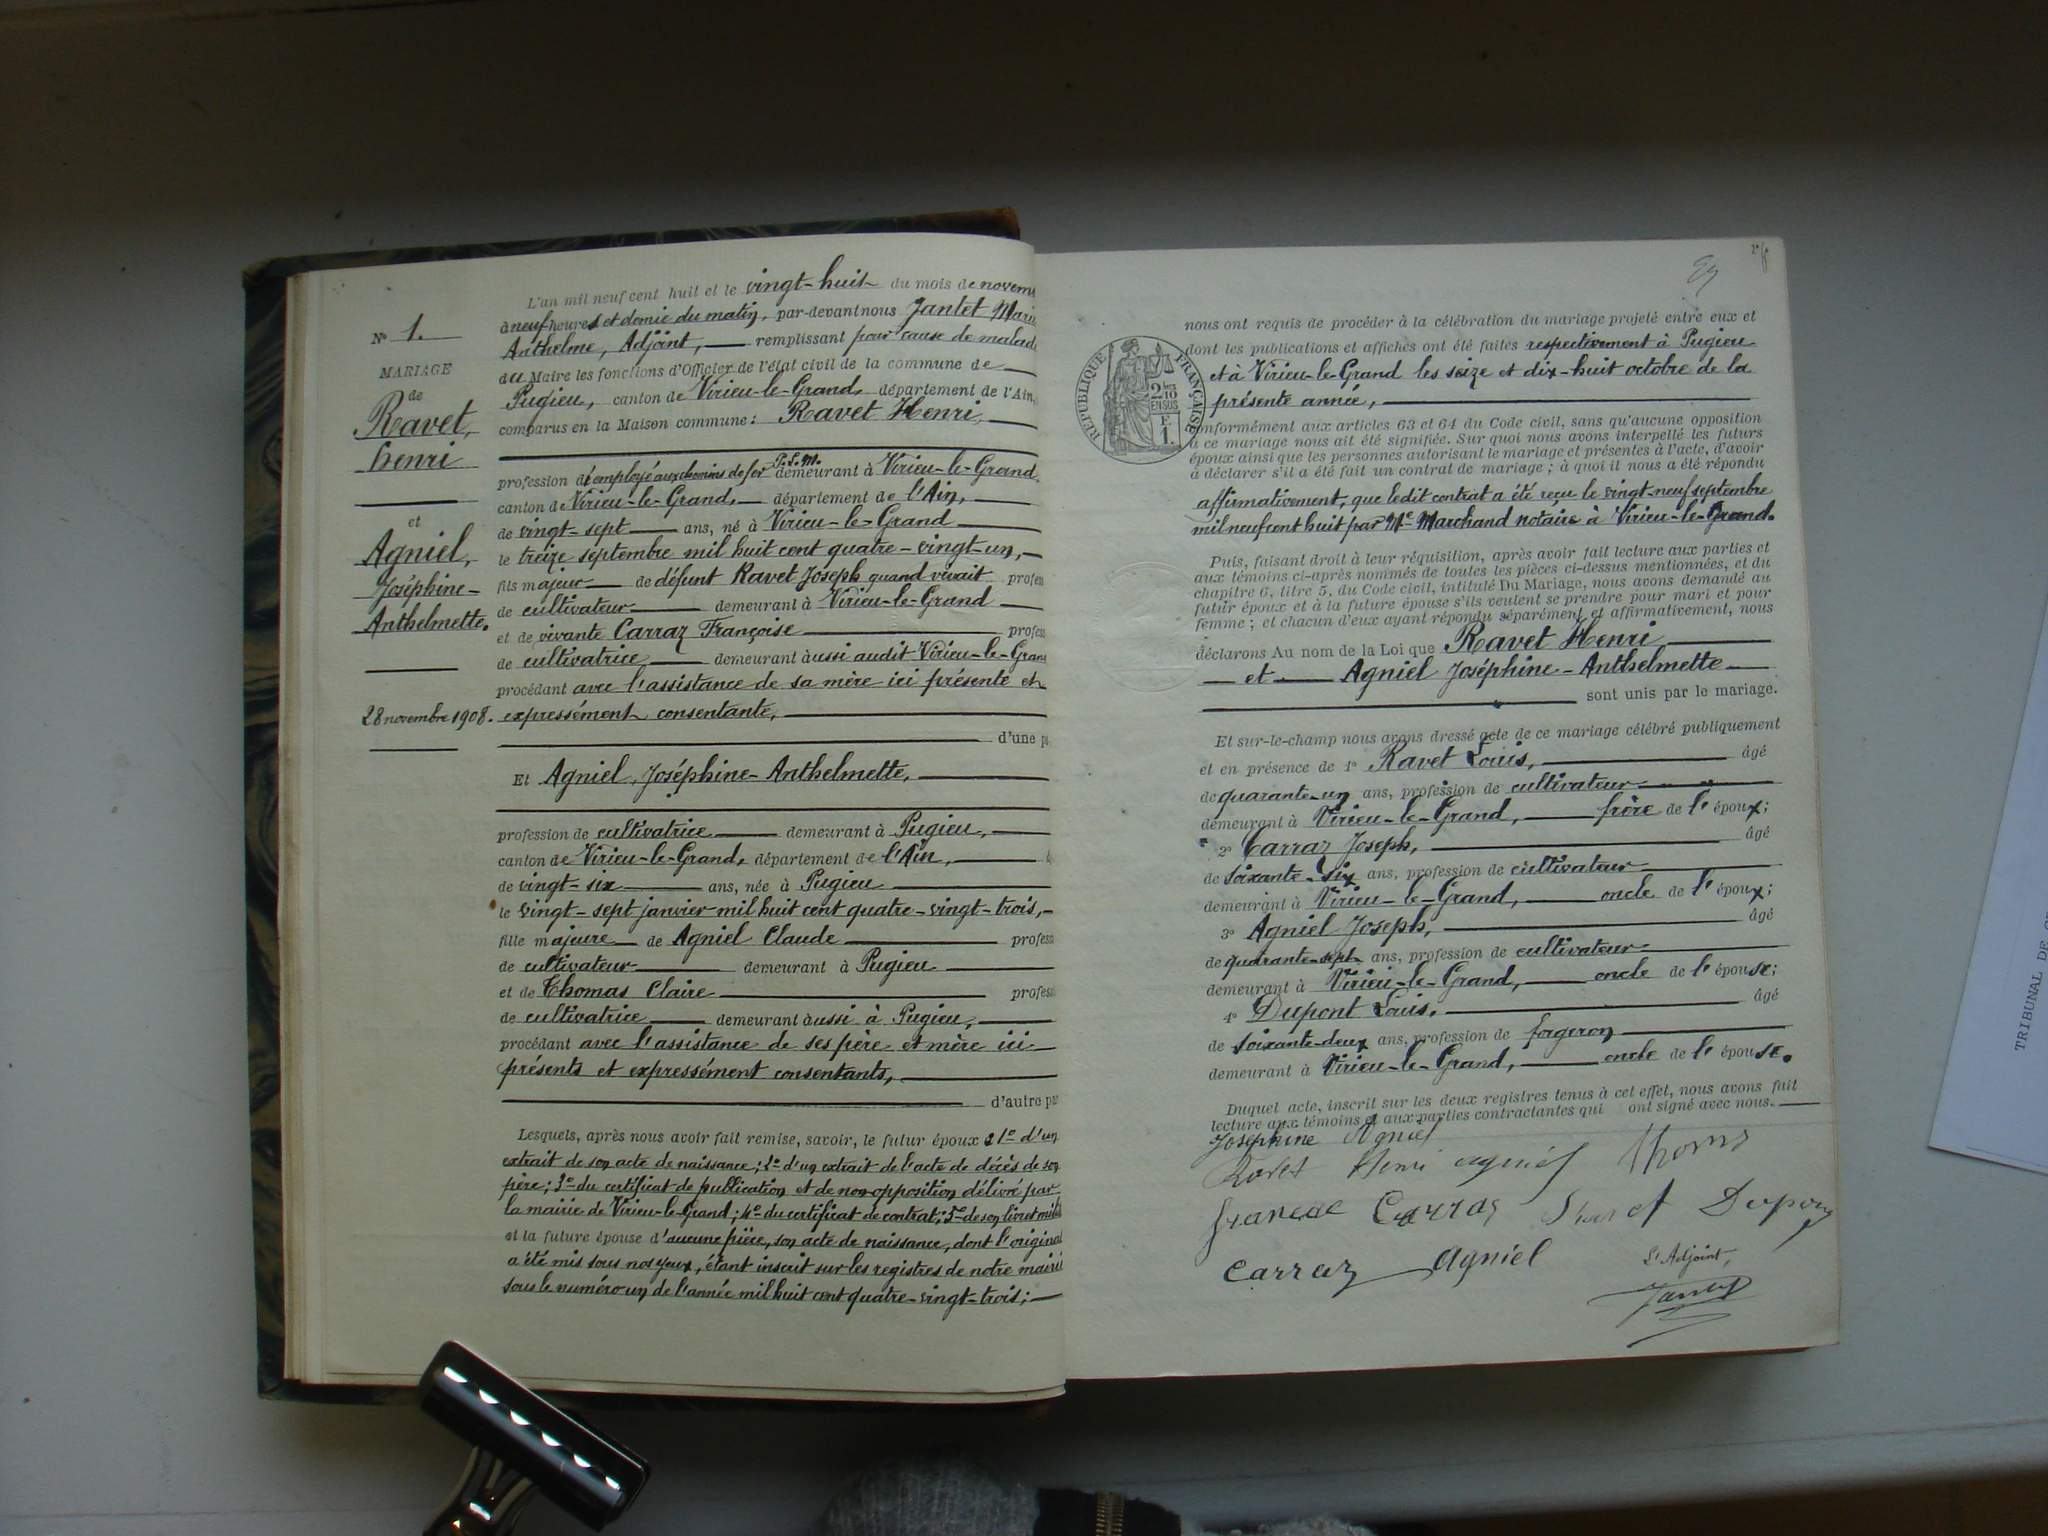 N° 1.
MARIAGE
de
Ravet,
Henri
et
Agniel,
Joséphine-
Anthelmette.
28 novembre 1908.
L'an mil neuf cent huit et le vingt-huit du mois de novem
à neuf heures et demie du matin, par-devant nous Jantet Mari
Anthelme, Adjoint, remplissant pour cause de malad
du Maire les fonctions d'Officier de l'état civil de la commune de
Pugieu, canton de Virieu-le-Grand, département de l'Ain,
comparus en la Maison commune: Ravet Henri,
profession d'employé aux chemins de fer P.L.M. demeurant à Virieu-le-Grand,
canton de Virieu-le-Grand, département de l'Ain,
de vingt-sept ans, né à Virieu-le-Grand
le treize septembre mil huit cent quatre-vingt-un,
fils majeur de défunt Ravet Joseph quand vivait profes
de cultivateur demeurant à Virieu-le-Grand
et de vivante Carraz Françoise profes
de cultivatrice demeurant aussi audit Virieu-le-Gran
procédant avec l'assistance de sa mère ici présente et
expressément consentante,
d'une p
Et Agniel, Joséphine-Anthelmette,
profession de cultivatrice demeurant à Pugieu,
canton de Virieu-le-Grand, département de l'Ain,
de vingt-six ans, née à Pugieu
le vingt-sept janvier mil huit cent quatre-vingt-trois,
fille majeure de Agniel Claude profess
de cultivateur demeurant à Pugieu
et de Thomas Claire profess
de cultivatrice demeurant aussi à Pugieu,
procédant avec l'assistance de ses père et mère ici
présents et expressément consentants,
d'autre par
Lesquels, après nous avoir fait remise, savoir, le futur époux 1° d'un
extrait de son acte de naissance; 2° d'un extrait de l'acte de décès de son
père; 3° du certificat de publication et de non-opposition délivré par
la mairie de Virieu-le-Grand; 4° du certificat de contrat; 5° de son livret mili
et la future épouse d'aucune pièce, son acte de naissance, dont l'original
a été mis sous nos yeux, étant inscrit sur les registres de notre mairie
sous le numéro un de l'année mil huit cent quatre-vingt-trois;
RÉPUBLIQUE FRANÇAISE
2/10
EN SUS
E
1.
nous ont requis de procéder à la célébration du mariage projeté entre eux et
dont les publications et affiches ont été faites respectivement à Pugieu
et à Virieu-le-Grand les seize et dix-huit octobre de la
présente année,
conformément aux articles 63 et 64 du Code civil, sans qu'aucune opposition
à ce mariage nous ait été signifiée. Sur quoi nous avons interpellé les futurs
époux ainsi que les personnes autorisant le mariage et présentes à l'acte, d'avoir
à déclarer s'il a été fait un contrat de mariage; à quoi il nous a été répondu
affirmativement, que ledit contrat a été reçu le vingt-neuf septembre
mil neuf cent huit par Me Marchand notaire à Virieu-le-Grand.
Puis, faisant droit à leur réquisition, après avoir fait lecture aux parties et
aux témoins ci-après nommés de toutes les pièces ci-dessus mentionnées, et du
chapitre 6, titre 5, du Code civil, intitulé Du Mariage, nous avons demandé au
futur époux et à la future épouse s'ils veulent se prendre pour mari et pour
femme; et chacun d'eux ayant répondu séparément et affirmativement, nous
déclarons Au nom de la Loi que Ravet Henri
et Agniel Joséphine-Anthelmette
sont unis par le mariage.
Et sur-le-champ nous avons dressé acte de ce mariage célébré publiquement
et en présence de 1° Ravet Louis, âgé
de quarante-un ans, profession de cultivateur
demeurant à Virieu-le-Grand, frère de l'époux;
2° Carraz Joseph, âgé
de soixante-six ans, profession de cultivateur
demeurant à Virieu-le-Grand, oncle de l'époux;
3° Agniel Joseph, âgé
de quarante-sept ans, profession de cultivateur
demeurant à Virieu-le-Grand, oncle de l'épouse;
4° Dupont Louis, âgé
de soixante-deux ans, profession de forgeron
demeurant à Virieu-le-Grand, oncle de l'épouse.
Duquel acte, inscrit sur les deux registres tenus à cet effet, nous avons fait
lecture aux témoins et aux parties contractantes qui ont signé avec nous.
Joséphine Agniel
Ravet Henri Agniel
Carraz
Carraz Agniel
L'Adjoint,
Jantet
TRIBUNAL DE